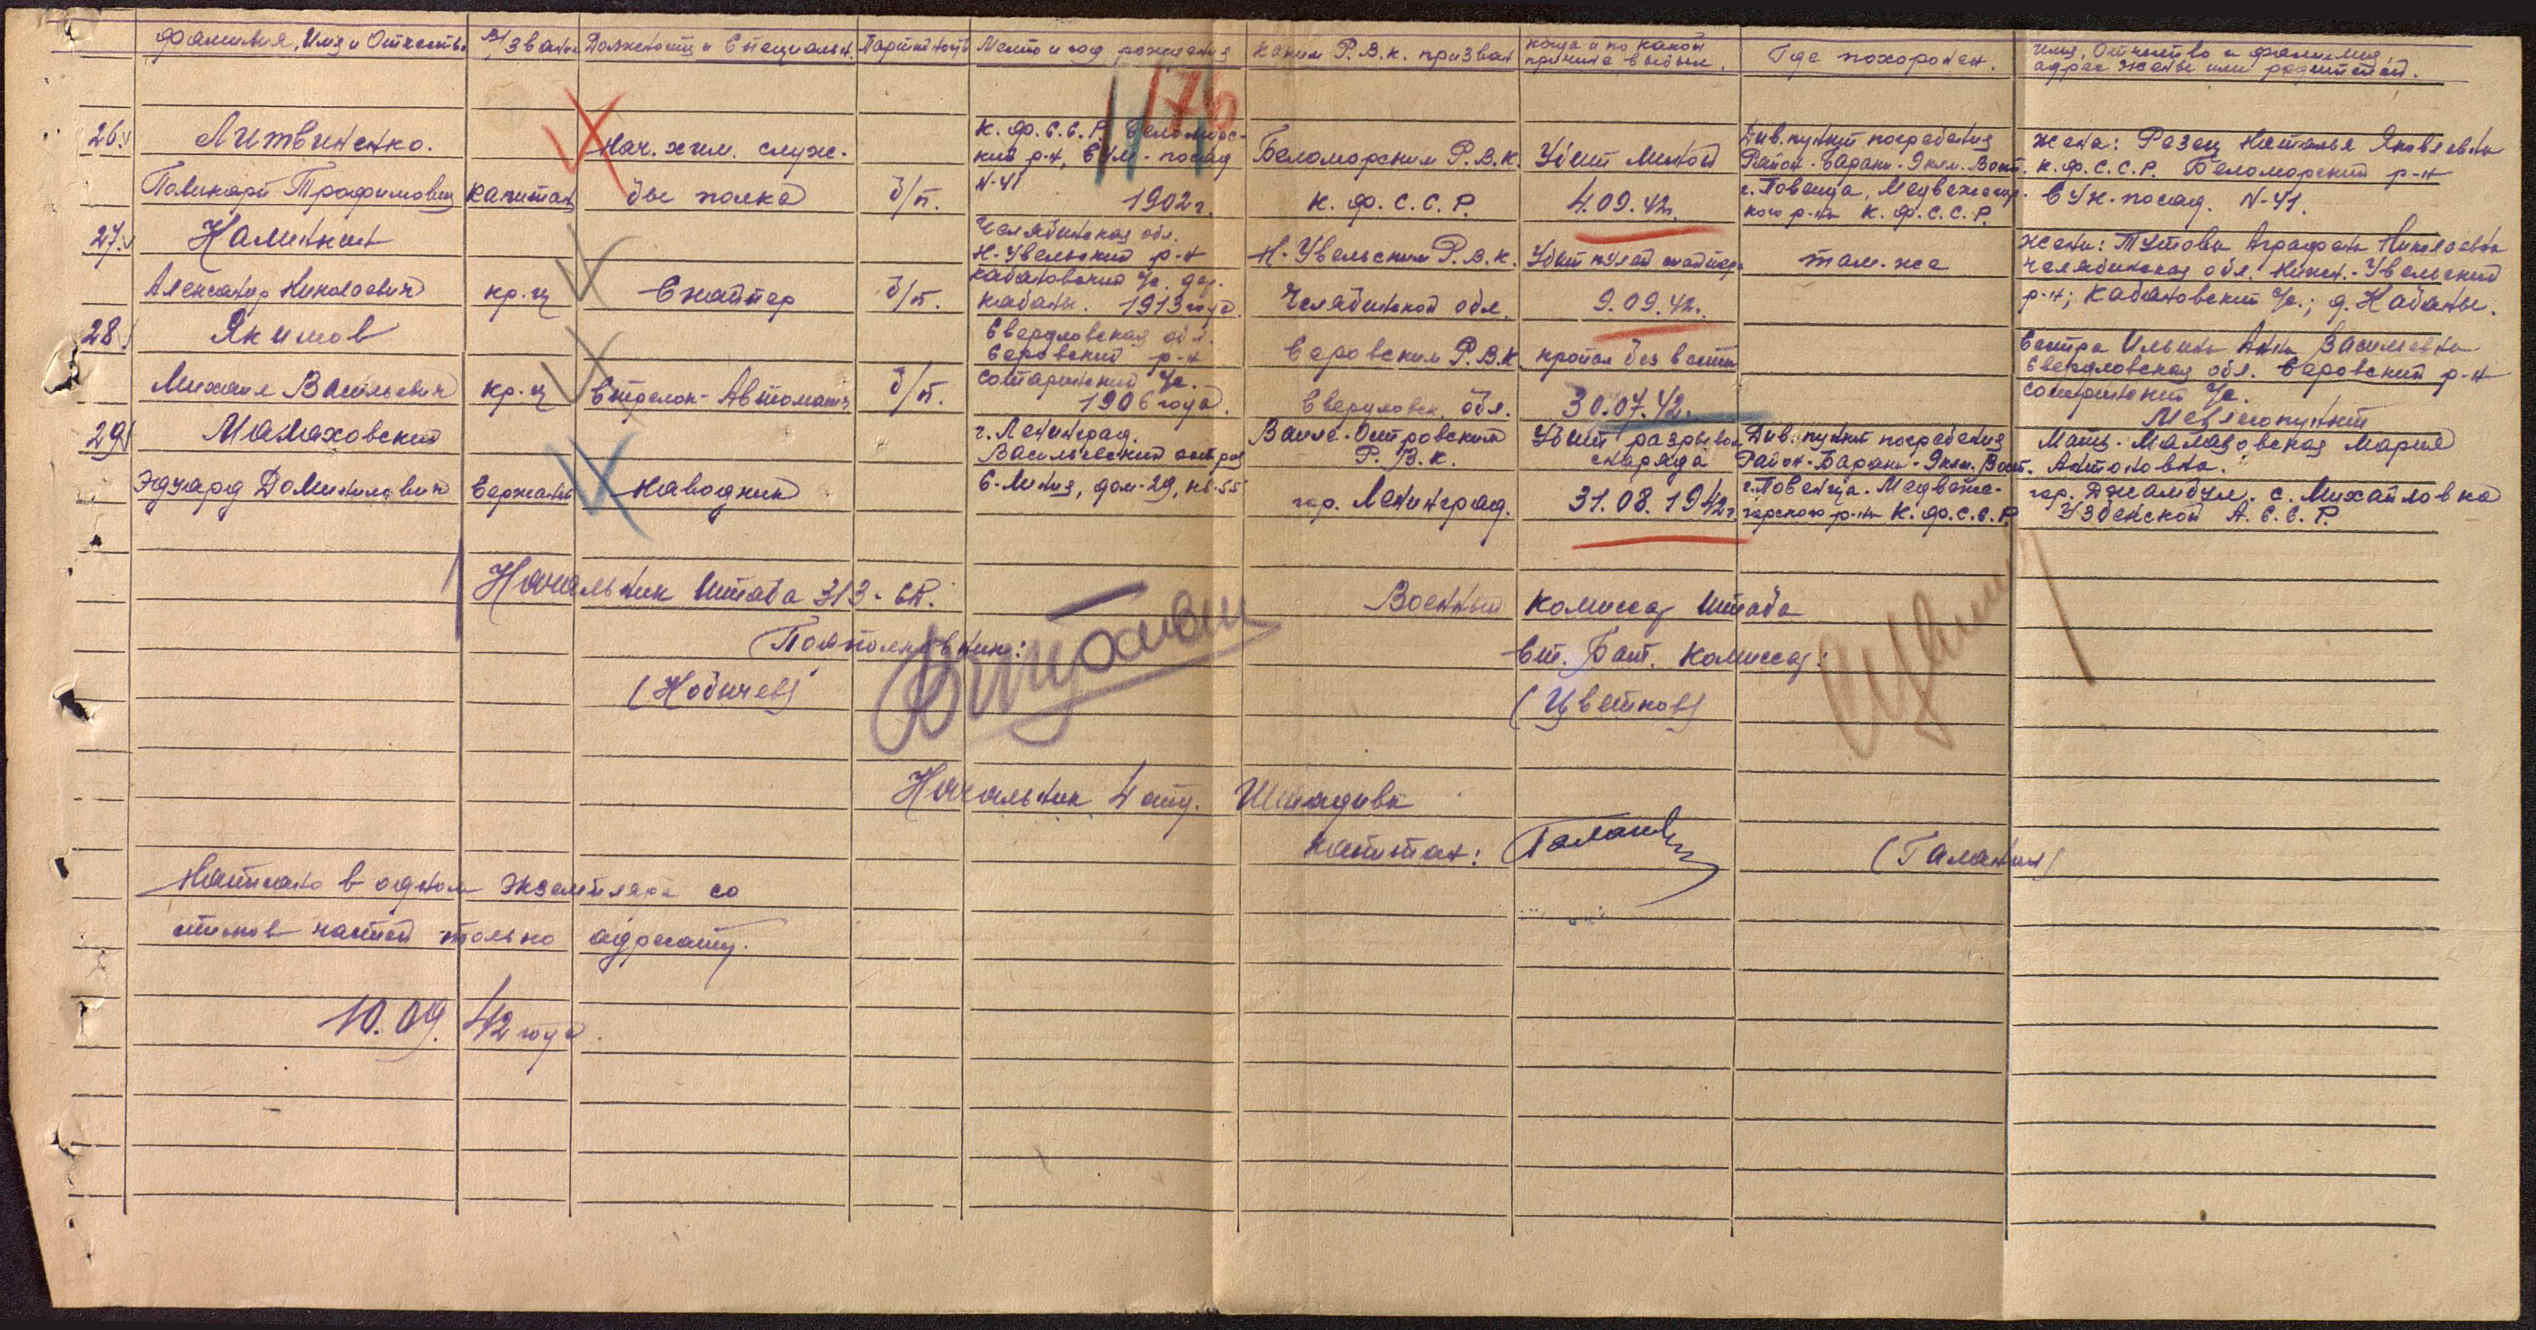 Фамилия, Имя и Отчество В/звание Должность и Специальн. Партийность Место и год рождения Каким Р.В.К. призван Когда и по какой причине выбыл. Где похоронен. Имя, Отчество и фамилия, адрес жены или родителей.
1176
26. Литвиненко.
Поликарп Трофимович
капитан
Нач. хим. служ-
бы полка
б/п.
К.Ф.С.С.Р. Беломорс-
кий р-н, Сум-посад
N-41
1902 г.
Беломорским Р.В.К.
К.Ф.С.С.Р.
Убит миной
4.09.42г.
Див. пункт погребения
Район-Барано- Экон. Вост.
г. Повенца, Медвежегор-
кого р-на К.Ф.С.С.Р.
Жена: Резец Наталья Яковлевна
К.Ф.С.С.Р. Беломорский р-н
Сум-посад. N-41.
27. Калинкин
Александр Николаевич
кр-ц
Снайпер
б/п.
Челябинская обл.
Н-Увельский р-н
Кабановский с/с. дер.
Кабаны. 1913 года.
Н-Увельским Р.В.К.
Челябинской обл.
Убит пулей снайпера
9.09.42г.
там-же
Жена: Тутова Аграфена Николаевна
Челябинская обл. Нижн.-Увельский
р-н; Кабановский с/с.; д. Кабаны.
28 Якимов
Михаил Васильевич
кр-ц
Стрелок-Автоматч
б/п.
Свердловская обл.
Серовский р-н
с/с.
1906 года.
Серовским Р.В.К.
Свердловск. обл.
пропал без вести
30.07.42г.
Сестра Ильина Анна Васильевна
Свердловская обл. Серовский р-н
с/с.
29 Малаховский
Эдуард Доминикович
Сержант
Наводчик
г. Ленинград.
Васильевский остров
6-Линия, дом-29, кв-55
Васил-Островским
Р.В.К.
гор. Ленинград.
Убит разрывом
снаряда
31.08.1942г.
Див. пункт погребения
Район-Барано- Экон. Вост.
г. Повенца. Медвеже-
горского р-на К.Ф.С.С.Р.
Мать-Малаховская Мария
Антоновна.
гор. Джамбул. с. Михайловка
Узбекской А.С.С.Р.
Начальник Штаба 313-СД.
Подполковник:
(Кобичев)
Военный комиссар Штаба
Ст. Бат. Комиссар:
(Цветков)
Начальник 4 отд. Штадива
капитан:
(Галанин)
Написано в одном экземпляре со
списков частей только адресату.
10.09.42 года.